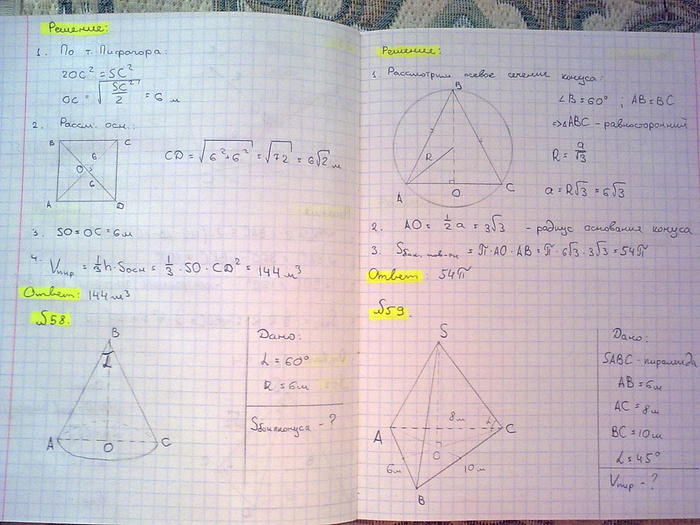 Решение:
1. По т. Пифагора:
2OC² = SC²
OC = √SC²/2 = 6 м
2. Рассм. осн.:
B C
6
O
6
A D
CD = √6²+6² = √72 = 6√2 м
3. SO = OC = 6м
4. Vпир = 1/3 h · Sосн = 1/3 · SO · CD² = 144 м³
Ответ: 144 м³
№58.
B
L
A O C
Дано:
L = 60°
R = 6м
Sбок конуса - ?
Решение:
1. Рассмотрим осевое сечение конуса:
B
R
A O C
∠B = 60° ; AB = BC
⇒ △ABC - равносторонний
R = a/√3
a = R√3 = 6√3
2. AO = 1/2 a = 3√3 - радиус основания конуса
3. Sбок. пов-ти = π · AO · AB = π · 6√3 · 3√3 = 54π
Ответ 54π
№59.
S
8м L
A C
O
6м 10м
B
Дано:
SABC - пирамида
AB = 6м
AC = 8м
BC = 10м
L = 45°
Vпир - ?